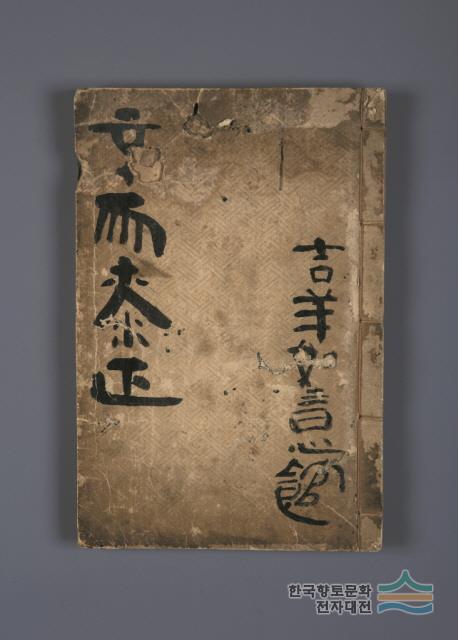 吉羊如意館
而泰正
한국향토문화
전자대전